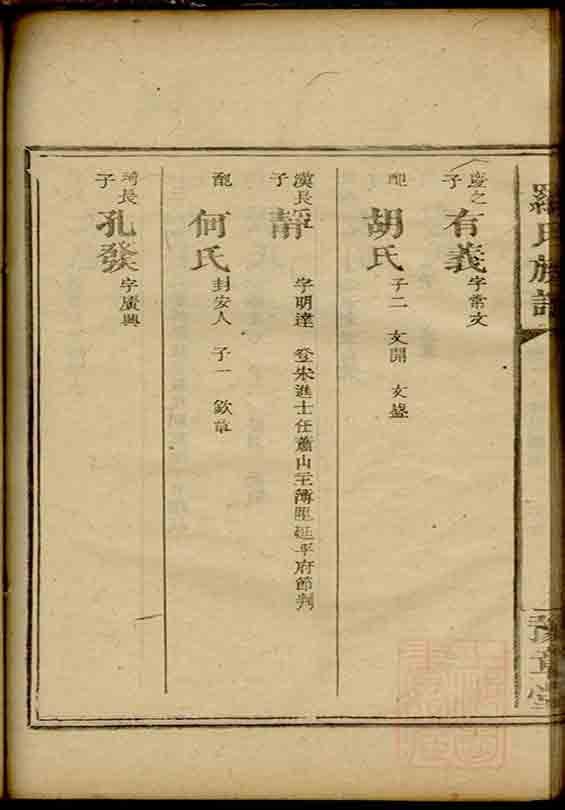 羅氏族譜
豫章堂
慶之子 有義 字常文
配 胡氏 子二 文開 文盛
漢長子 靜 字明達 登宋進士任蕭山主簿陞延平府節判
配 何氏 封安人 子一 欽章
長子 孔發 字廣興